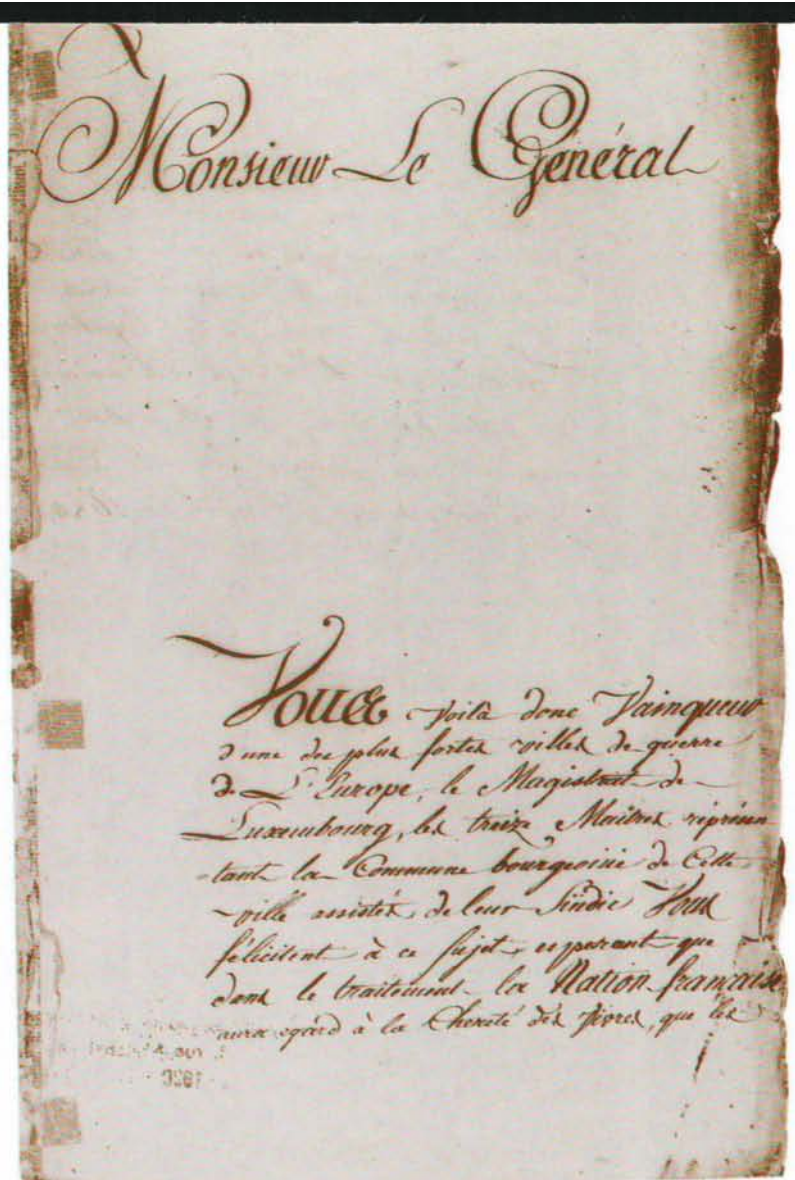 Monsieur Le Général
Vous Voilà donc Vainqueur
d'une des plus fortes villes de guerre
de L'Europe, le Magistrat de
Luxembourg, les treize Maîtres représen
-tant la Commune bourgeoisie de Cette
ville assistés de leur Sindic Vous
félicitent à ce sujet, esperant que
dans le traitement la Nation française
aura egard à la Chereté des vivres, que les